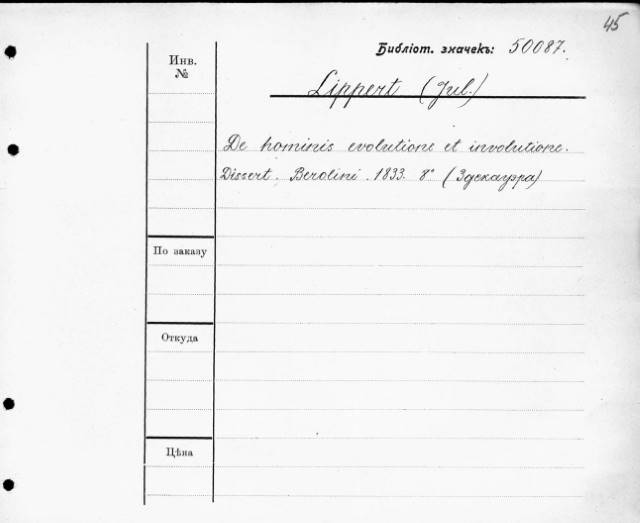 45
Библіот. значекъ: 50087.
Инв.
№
Lippert (Jul.)
De hominis evolutione et involutione.
Dissert. Berolini. 1833. 8° (Здекауэра)
По заказу
Откуда
Цѣна